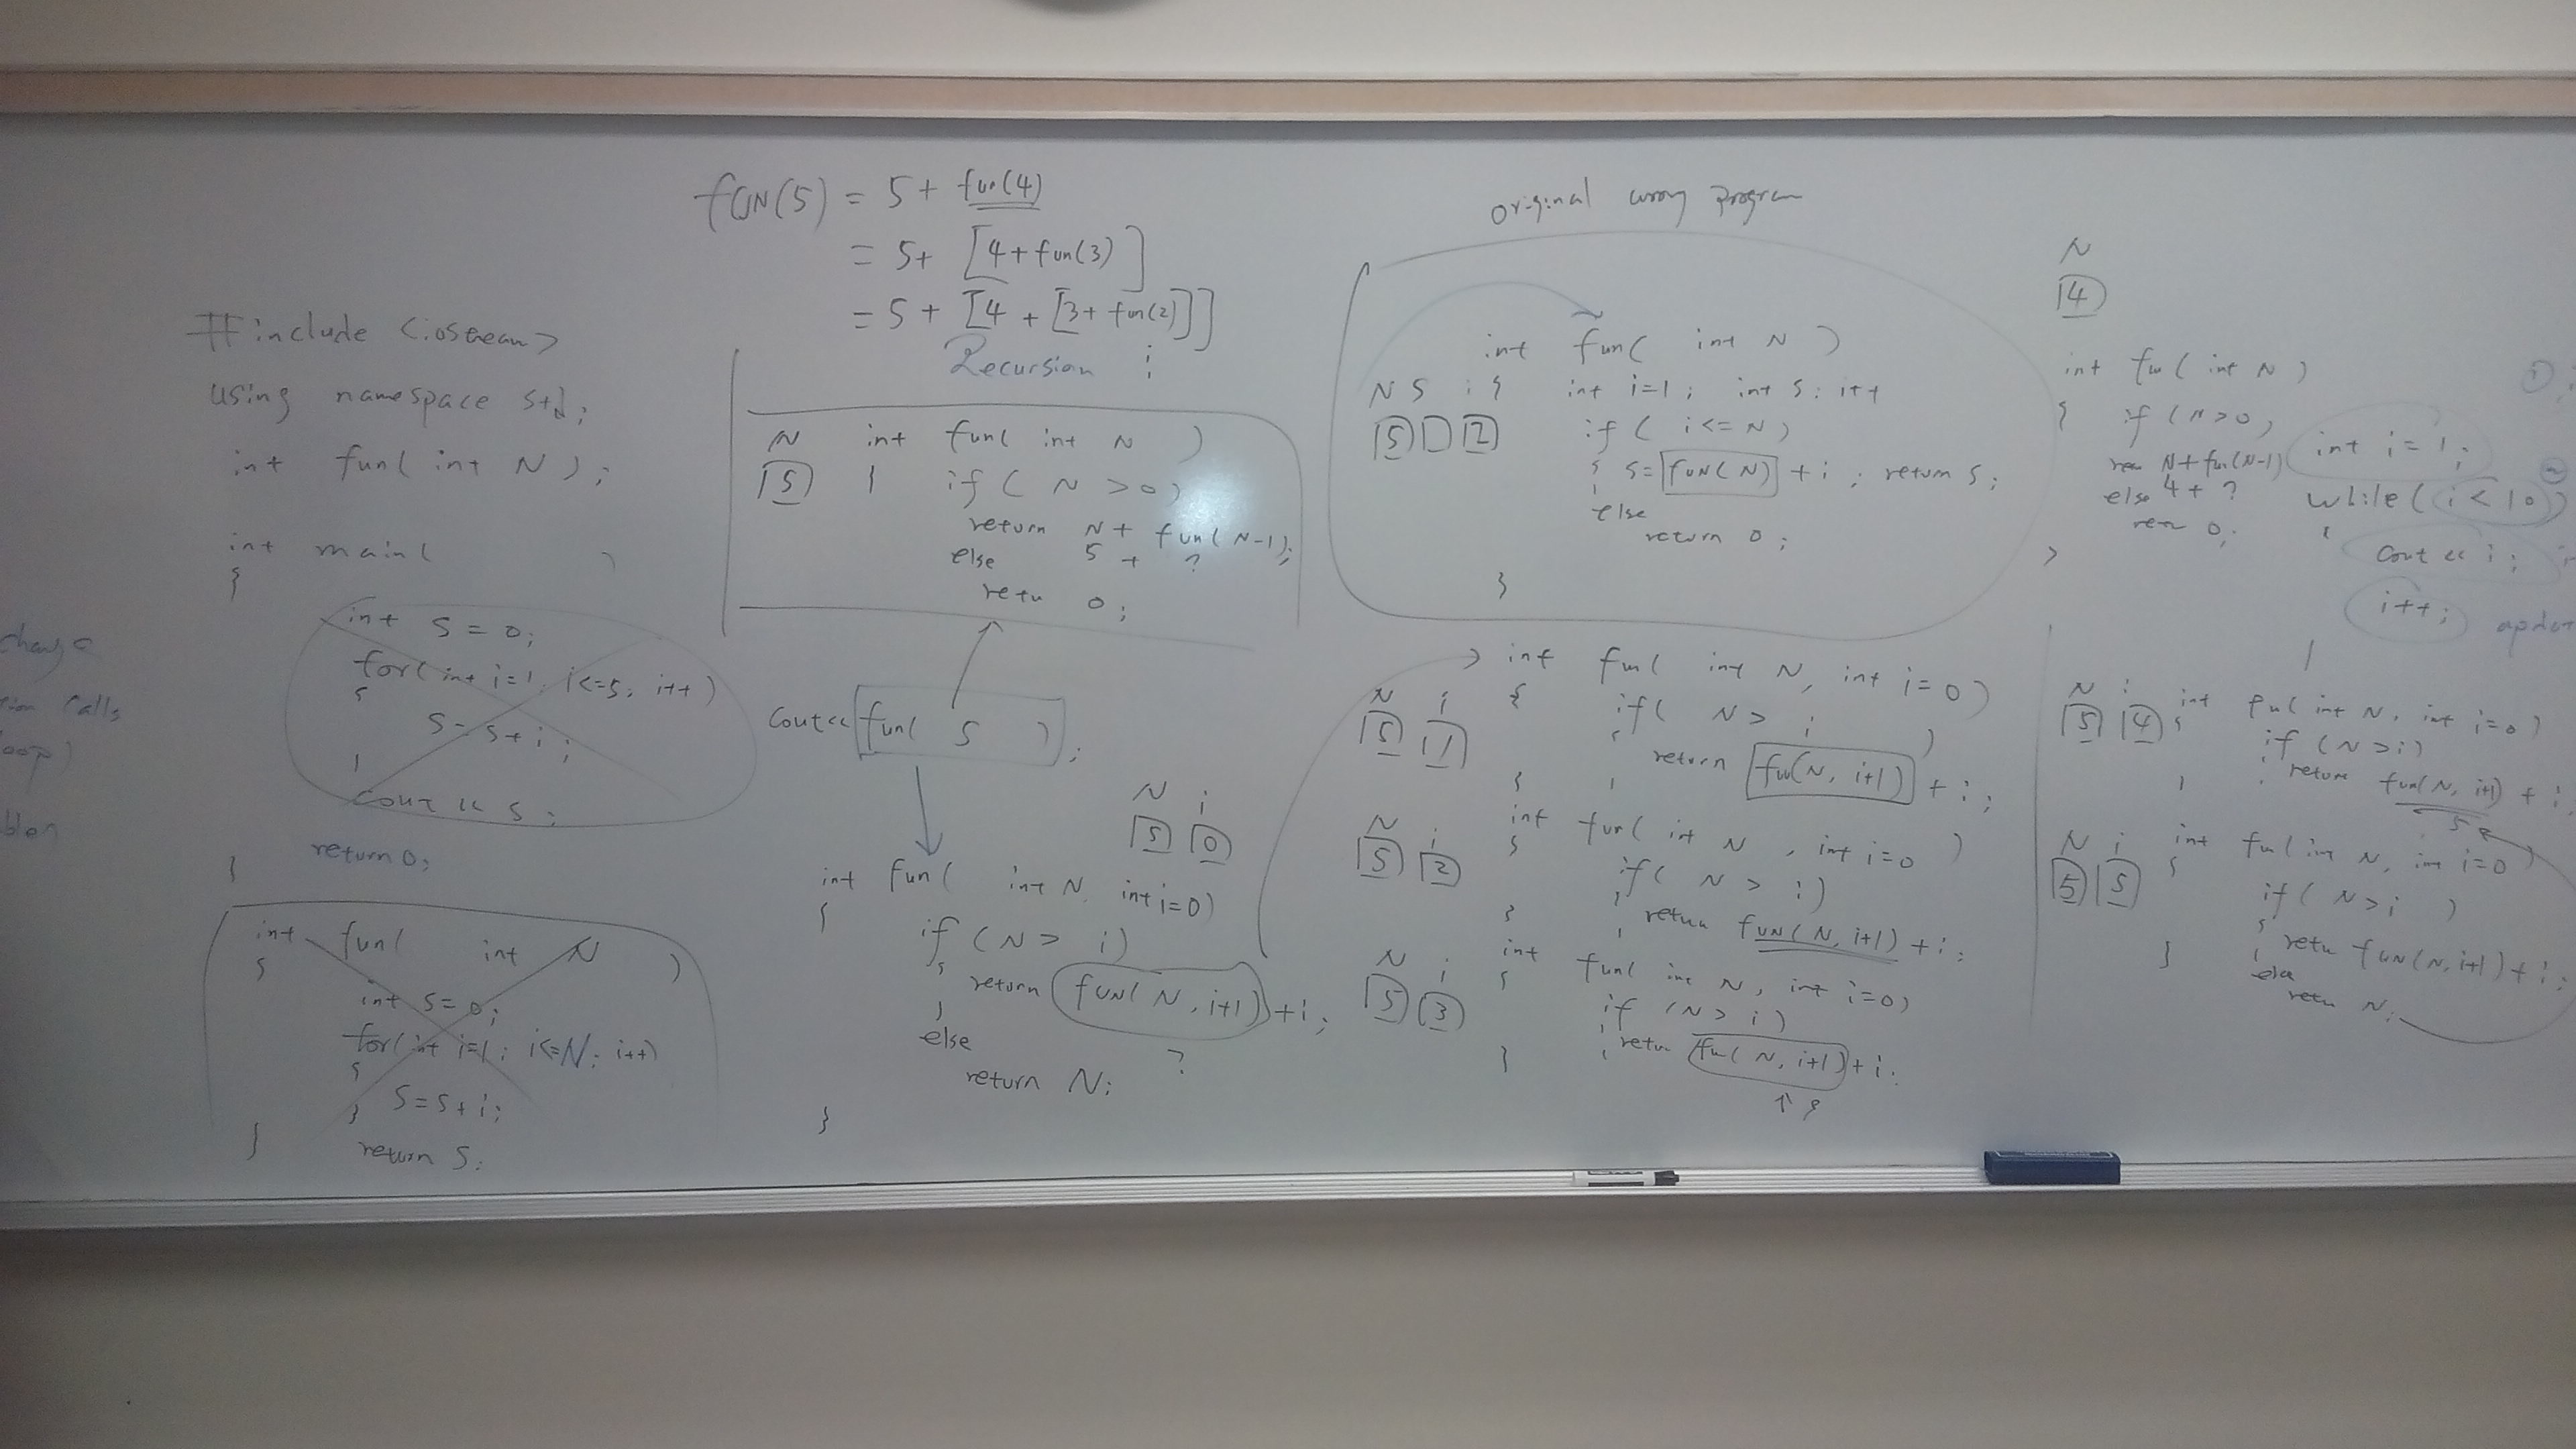 fUN(5) = 5 + fun(4)
= 5+ [4+fun(3)]
= 5 + [4 + [3+ fun(2)]]
Recursion
#include <iostream>
using namespace std;
int fun( int N );
int main( )
{
int S = 0;
for( int i=1; i<=5; i++)
{
S = S+i;
}
cout << S;
return 0;
}
int fun( int N )
{
int S=0;
for(int i=1; i<=N; i++)
{
S=S+i;
}
return S;
}
change
calls
loop)
N
5
int fun( int N )
{ if( N >0)
return N + fun( N-1);
else 5 + ?
retu 0;
cout<< fun( 5 );
N i
5 0
int fun( int N, int i=0)
{
if (N > i)
{ return fUN( N, i+1) +i;
}
else ?
return N;
}
original wrong program
int fun( int N )
N S i { int i=1; int S; i++
5 2 if( i<=N)
{ S= fUN(N) + i; return S;
}
else
return 0;
}
int fun( int N, int i=0)
N i {
5 1 if( N > i )
{ return fun(N, i+1) + i;
} }
int fun( int N, int i=0 )
N i {
5 2 if( N > i)
{ return fUN( N, i+1) + i;
}
int fun( int N, int i=0)
N i {
5 3 if (N > i)
{ retu fun( N, i+1) + i;
}
N
4
int fun( int N )
{ if (N>0)
N+ fun(N-1)
else 4 + ?
retu 0;
}
int i=1;
while( i<10)
{
cout << i;
i++;
N i int fun( int N, int i=0)
5 4 {
if (N>i)
{ return fun(N, i+1) + i;
} 5
N i int fun( int N, int i=0)
5 5 {
if( N>i )
{ retu fUN(N, i+1)+i;
} }
else
retu N;